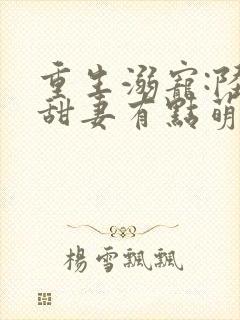 重生溺寵:隆
甜妻有點萌
楊雪飄飄